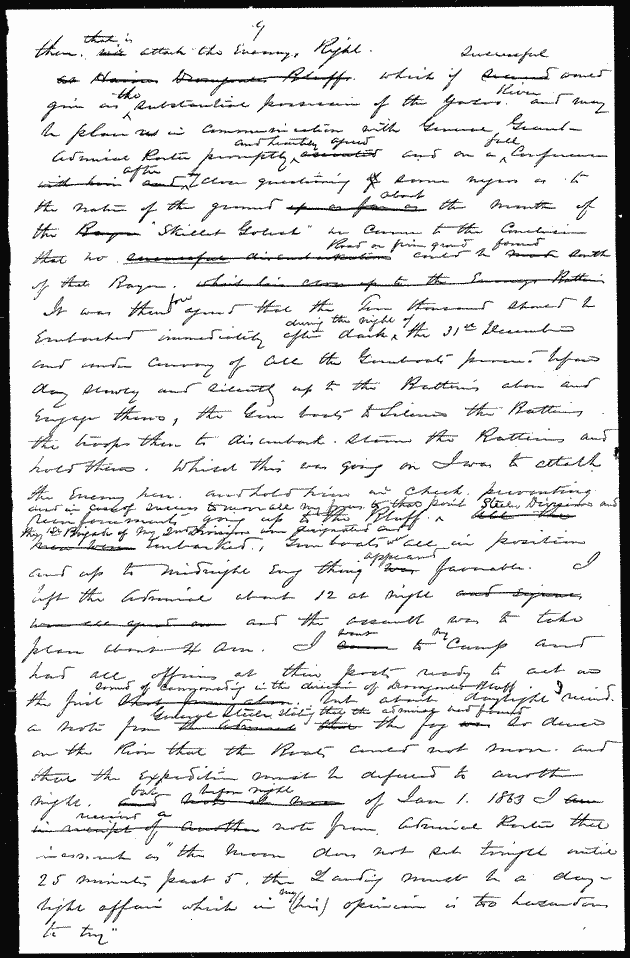 9
then. that is attack the Enemy's Right. successful
as Haines Drumgoulds Bluffs. which if second would
give us the substantial possession of the Yazoo River and may
be place us in communication with General Grant—
Admiral Porter promptly and heartily agreed assented and on a full Conference
with him and after close questioning of some negros as to
the nature of the ground up as far as about the mouth of
the Bayou "Skillet Goliah" we came to the Conclusion
that no successful disembarkation Road or firm ground could be made found south
of that Bayou. which lies close up to the Enemys Batteries
It was therefore agreed that the Ten thousand should be
Embarked immediately after dark during the night of the 31st December
and under convoy of all the Gunboats proceed before
day slowly and silently up to the Batteries above and
Engage them, the Gun boats to Silence the Batteries.
the troops then to disembark. storm the Batteries and
hold them. Whilst this was going on I was to attack
the Enemy here. and hold him in check preventing
and in case of success to move all my force to that point Steeles Division and
reinforcements going up to the Bluff. All the
the 1st Brigade of my 2nd Division were designated and
men were Embarked, Gunboats all in position
and up to midnight Every thing was appeared favorable. I
left the Admiral about 12 at night and signals
were all agreed on and the assault was to take
place about 4 am. I went to my Camp and
had all officers at their posts ready to act on
the first shot from above. sound of cannonading in the direction of Drumgoulds Bluff but about daylight I received
a note from the Admiral General Steele stating that the admiral had found the fog was so dense
on the River that the Boats could not move. and
that the Expedition must be deferred to another
night. and note at noon but before night of Jan 1. 1863 I am
in receipt of another received a note from Admiral Porter that
inasmuch as "the Moon does not set tonight until
25 minutes past 5. the Landing must be a day-
light affair which in my (his) opinion is too hazardous
to try"